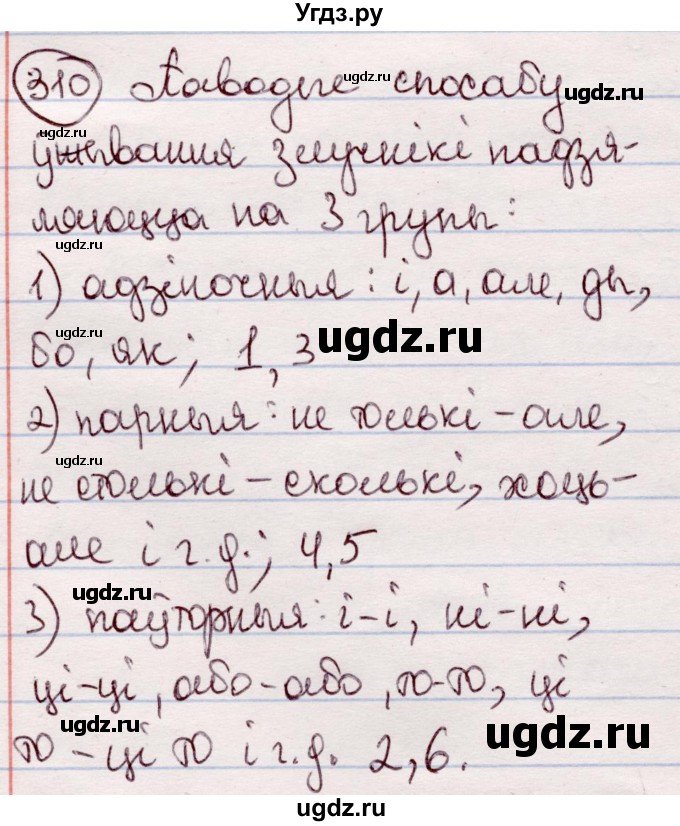 Угдз.ру
310 Паводле спосабу
ужывання злучнікі падзя-
ляюцца на 3 групы:
1) адзіночныя: і, а, але, ды,
бо, як; 1, 3
2) парныя: не толькі - але,
не столькі - сколькі, хоць-
але і г.д.; 4,5
3) паўторныя: і-і, ні-ні,
ці-ці, або-або, то-то, ці
то - ці то і г.д. 2,6.
ugdz.ru
ugdz.ru
ugdz.ru
ugdz.ru
ugdz.ru
ugdz.ru
ugdz.ru
ugdz.ru
ugdz.ru
ugdz.ru
ugdz.ru
ugdz.ru
ugdz.ru